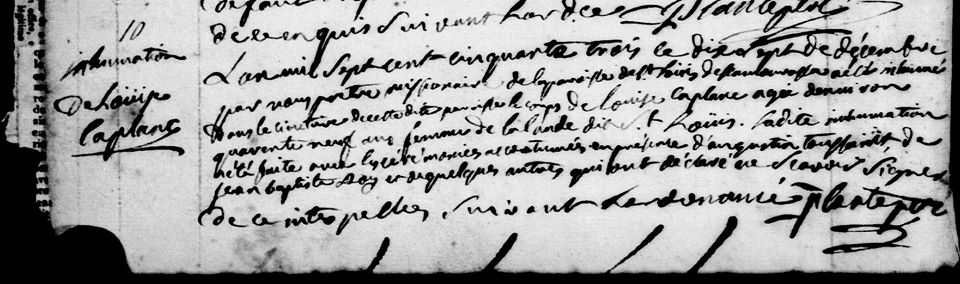 de ce enquis suivant l'ordce Plantepié
10
inhumation
De Loüise
laplante
L'an mil sept cent cinquante trois le dix sept de décembre
par nous pretre missionaire de la paroisse de St Loüis de a été inhumé
Dans le cimetiere de cette dite paroisse le corps de Loüise laplante agée d'environ
quarente neuf ans femme de lalande dit St Loüis. Ladite inhumation
a été faite avec les cérémonies accoutumées en présence d'augustin toussaint, de
jean baptiste Roy et de quelques autres qui ont déclaré ne scavoir signer
de ce interpellés, suivant l'ordonance